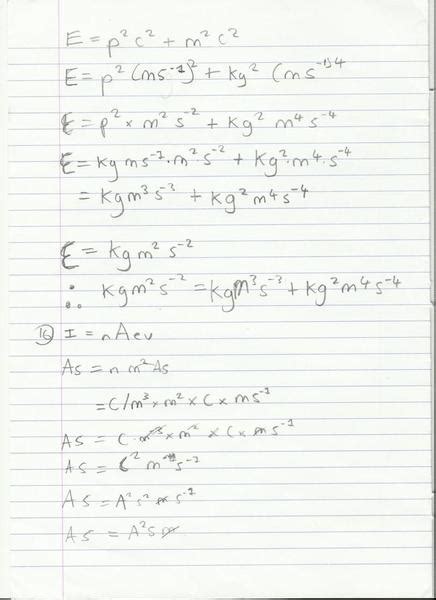 E = p²c² + m²c²
E = p² (ms⁻¹)² + kg² (ms⁻¹)4
E = p² × m² s⁻² + kg² m⁴ s⁻⁴
E = kg ms⁻¹·m² s⁻² + kg²·m⁴·s⁻⁴
= kg m³ s⁻³ + kg² m⁴ s⁻⁴
E = kg m² s⁻²
∴ kg m² s⁻² = kg m³ s⁻³ + kg² m⁴ s⁻⁴
16 I = nAev
As = n m² As
= C/m³ × m² × C × ms⁻¹
As = C · m⁻³ × m² × C × m s⁻¹
As = C² s⁻¹
As = A² s² s⁻¹
As = A² s